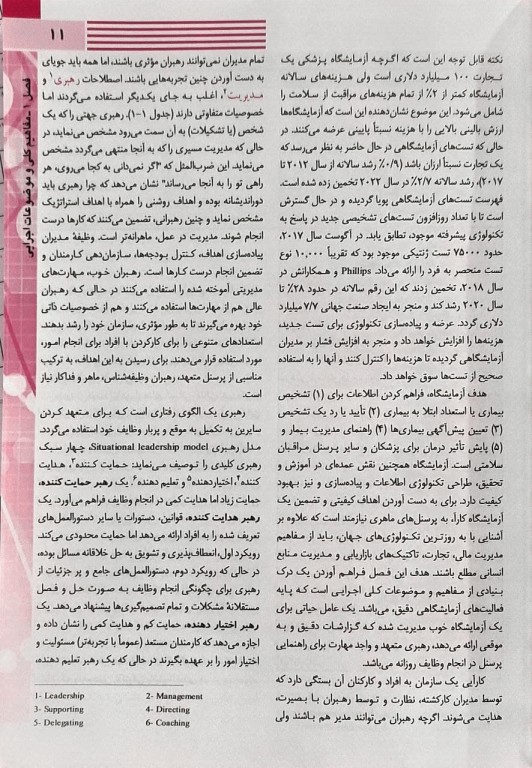 ۱۱
فصل ۱ - مفاهیم کلی و موضوعات اجرایی
نکته قابل توجه این است که اگرچه آزمایشگاه پزشکی یک
تجارت ۱۰۰ میلیارد دلاری است ولی هزینه‌های سالانه
آزمایشگاه کمتر از ۲٪ از تمام هزینه‌های مراقبت از سلامت را
شامل می‌شود. این موضوع نشان‌دهنده این است که آزمایشگاه‌ها
ارزش بالینی بالایی را با هزینه نسبتاً پایینی عرضه می‌کنند. در
حالی که تست‌های آزمایشگاهی در حال حاضر به نظر می‌رسد که
یک تجارت نسبتاً ارزان باشد (۰/۹٪ رشد سالانه از سال ۲۰۱۲ تا
۲۰۱۷)، رشد سالانه ۲/۷٪ در سال ۲۰۲۲ تخمین زده شده است.
فهرست تست‌های آزمایشگاهی پویا گردیده و در حال گسترش
است تا با تعداد روزافزون تست‌های تشخیصی جدید در پاسخ به
تکنولوژی پیشرفته موجود، تطابق یابد. در آگوست سال ۲۰۱۷،
حدود ۷۵۰۰۰ تست ژنتیکی موجود بود که تقریباً ۱۰,۰۰۰ نوع
تست منحصر به فرد را ارائه می‌داد. Phillips و همکارانش در
سال ۲۰۱۸، تخمین زدند که این رقم سالانه در حدود ۲۸٪ تا
سال ۲۰۲۰ رشد کند و منجر به ایجاد صنعت جهانی ۷/۷ میلیارد
دلاری گردد. عرضه و پیاده‌سازی تکنولوژی برای تست جدید،
هزینه‌ها را افزایش خواهد داد و منجر به افزایش فشار بر مدیران
آزمایشگاهی گردیده تا هزینه‌ها را کنترل کنند و آنها را به استفاده
صحیح از تست‌ها سوق خواهد داد.
هدف آزمایشگاه، فراهم کردن اطلاعات برای (۱) تشخیص
بیماری یا استعداد ابتلا به بیماری (۲) تأیید یا رد یک تشخیص
(۳) تعیین پیش‌آگهی بیماری‌ها (۴) راهنمای مدیریت بیمار و
(۵) پایش تأثیر درمان برای پزشکان و سایر پرسنل مراقبان
سلامتی است. آزمایشگاه همچنین نقش عمده‌ای در آموزش و
تحقیق، طراحی تکنولوژی اطلاعات و پیاده‌سازی و نیز بهبود
کیفیت دارد. برای به دست آوردن اهداف کیفیتی و تضمین یک
آزمایشگاه کارآ، به پرسنل‌های ماهری نیازمند است که علاوه بر
آشنایی با به روزترین تکنولوژی‌های جهان، باید از مفاهیم
مدیریت مالی، تجارت، تاکتیک‌های بازاریابی و مدیریت منابع
انسانی مطلع باشند. هدف این فصل فراهم آوردن یک درک
بنیادی از مفاهیم و موضوعات کلی اجرایی است که پایه
فعالیت‌های آزمایشگاهی دقیق، می‌باشد. یک عامل حیاتی برای
یک آزمایشگاه خوب مدیریت شده که گزارشات دقیق و به
موقعی ارائه می‌دهد، رهبری متعهد و واجد مهارت برای راهنمایی
پرسنل در انجام وظایف روزانه می‌باشد.
کارآیی یک سازمان به افراد و کارکنان آن بستگی دارد که
توسط مدیران کارکشته، نظارت و توسط رهبران با بصیرت،
هدایت می‌شوند. اگرچه رهبران می‌توانند مدیر هم باشند ولی
تمام مدیران نمی‌توانند رهبران مؤثری باشند، اما همه باید جویای
به دست آوردن چنین تجربه‌هایی باشند. اصطلاحات رهبری۱ و
مدیریت۲، اغلب به جای یکدیگر استفاده می‌گردند اما
خصوصیات متفاوتی دارند (جدول ۱-۱). رهبری جهتی را که یک
شخص (یا تشکیلات) به آن سمت می‌رود مشخص می‌نماید، در
حالی که مدیریت مسیری را که به آنجا منتهی می‌گردد مشخص
می‌نماید. این ضرب‌المثل که "اگر نمی‌دانی به کجا می‌روی، هر
راهی تو را به آنجا می‌رساند" نشان می‌دهد که چرا رهبری باید
دوراندیشانه بوده و اهداف روشنی را همراه با اهداف استراتژیک
مشخص نماید و چنین رهبرانی، تضمین می‌کنند که کارها درست
انجام شوند. مدیریت در عمل، ماهرانه‌تر است. وظیفهٔ مدیران
پیاده‌سازی اهداف، کنترل بودجه‌ها، سازمان‌دهی کارمندان و
تضمین انجام درست کارها است. رهبران خوب، مهارت‌های
مدیریتی آموخته شده را استفاده می‌کنند در حالی که رهبران
عالی هم از مهارت‌ها استفاده می‌کنند و هم از خصوصیات ذاتی
خود بهره می‌گیرند تا به طور مؤثری، سازمان خود را رشد بدهند.
استعدادهای متنوعی را برای کارکردن با افراد برای انجام امور،
مورد استفاده قرار می‌دهند. برای رسیدن به این اهداف، به ترکیب
مناسبی از پرسنل متعهد، رهبران وظیفه‌شناس، ماهر و فداکار نیاز
است.
رهبری یک الگوی رفتاری است که برای متعهد کردن
سایرین به تکمیل به موقع و پربار وظایف خود استفاده می‌گردد.
مدل رهبری Situational leadership model، چهار سبک
رهبری کلیدی را توصیف می‌نماید: حمایت کننده۳، هدایت
کننده۴، اختیاردهنده۵ و تعلیم دهنده۶. یک رهبر حمایت کننده،
حمایت زیاد اما هدایت کمی در انجام وظایف فراهم می‌آورد. یک
رهبر هدایت کننده، قوانین، دستورات یا سایر دستورالعمل‌های
تعریف شده را به افراد ارائه می‌دهد اما حمایت محدودی می‌کند.
رویکرد اول، انعطاف‌پذیری و تشویق به حل خلاقانه مسائل بوده،
در حالی که رویکرد دوم، دستورالعمل‌های جامع و پر جزئیات از
رهبری برای چگونگی انجام وظایف به صورت حل و فصل
مستقلانهٔ مشکلات و تمام تصمیم‌گیری‌ها پیشنهاد می‌دهد. یک
رهبر اختیار دهنده، حمایت کم و هدایت کمی را نشان داده و
اجازه می‌دهد که کارمندان مستعد (عموماً با تجربه‌تر) مسئولیت و
اختیار امور را بر عهده بگیرند در حالی که یک رهبر تعلیم دهنده،
1- Leadership 2- Management
3- Supporting 4- Directing
5- Delegating 6- Coaching